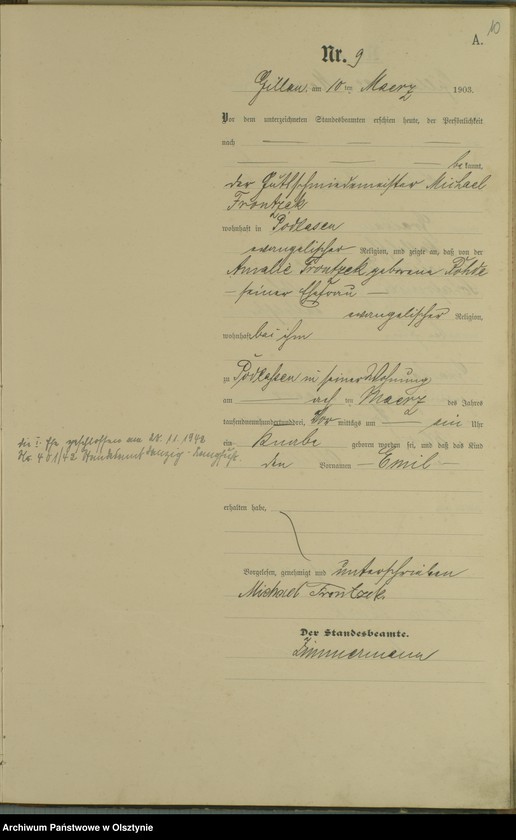 10
A.
Nr. 9
Gillau, am 10 ten Maerz 1903.
Vor dem unterzeichneten Standesbeamten erschien heute, der Persönlichkeit
nach
bekannt,
der Gutsschmiedemeister Michael
Frontzek
wohnhaft in Podlasen
evangelischer Religion, und zeigte an, daß von der
Amalie Frontzek geborene Rohde
– seiner Ehefrau –
evangelischer Religion,
wohnhaft bei ihm
zu Podlassen in seiner Wohnung
am acht ten Maerz des Jahres
tausendneunhundertunddrei, Vor mittags um ein Uhr
ein Knabe geboren worden sei, und daß das Kind
den Vornamen – Emil –
erhalten habe,
die I. Ehe geschlossen am 11. 1942
Standesamt Danzig - Langfuhr.
Vorgelesen, genehmigt und unterschrieben
Michael Frontzek
Der Standesbeamte.
Zimmermann
Archiwum Państwowe w Olsztynie